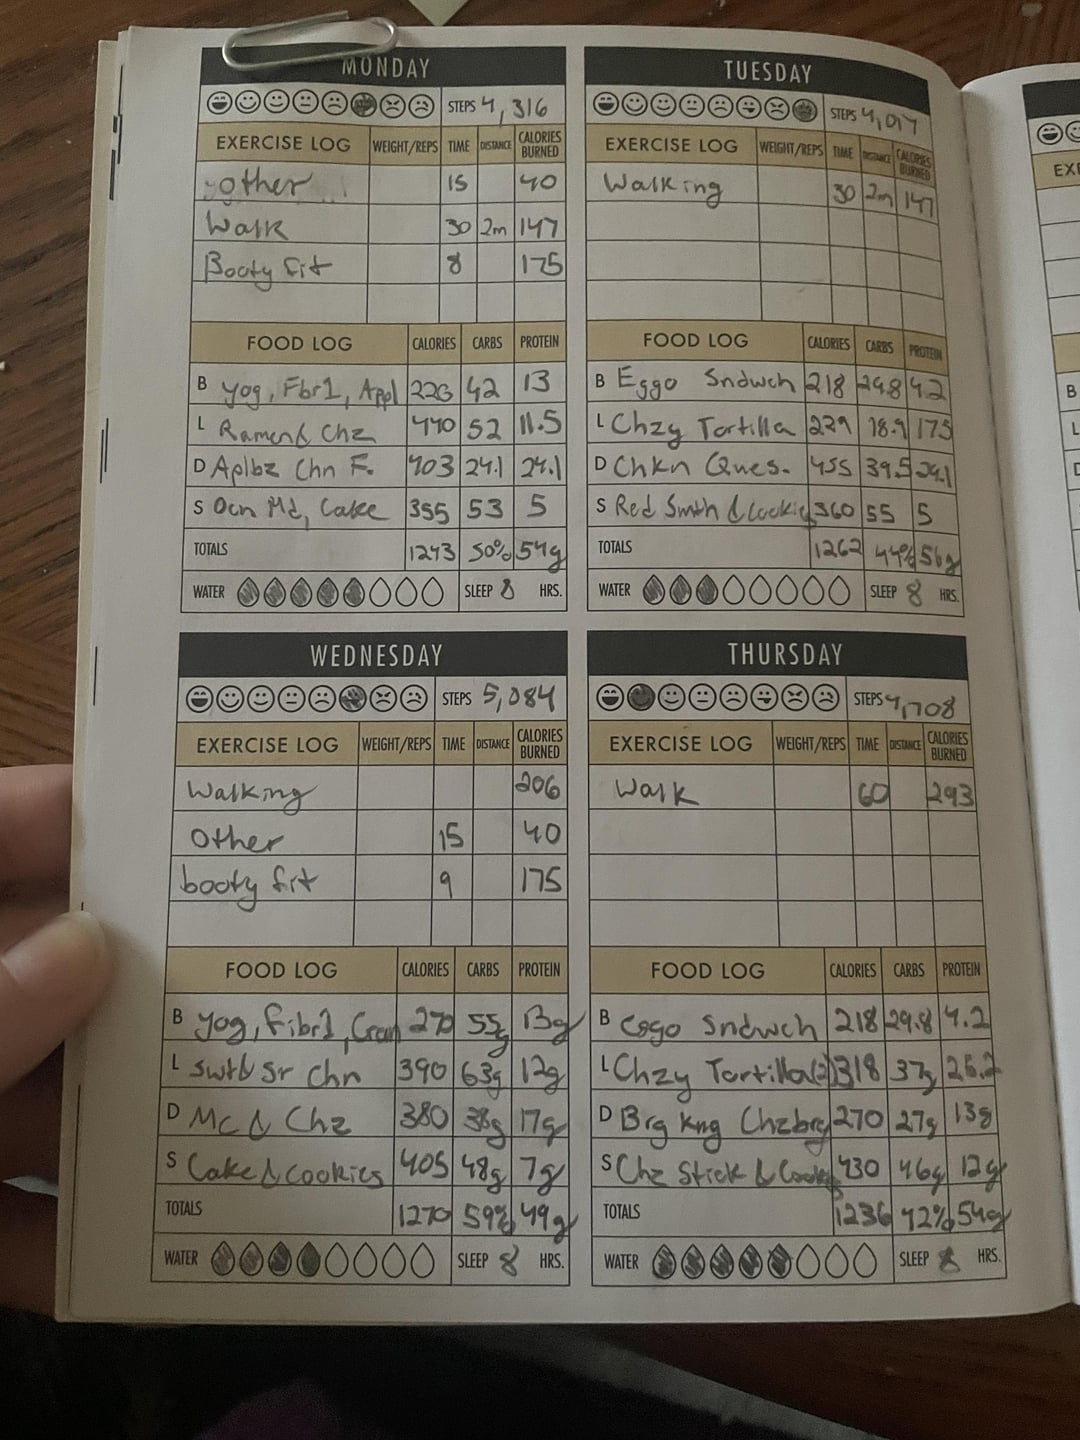 MONDAY
STEPS 4,316
EXERCISE LOG WEIGHT/REPS TIME DISTANCE CALORIES BURNED
other 15 40
Walk 30 2m 147
Booty fit 8 175
FOOD LOG CALORIES CARBS PROTEIN
B Yog, Fbr1, Appl 42 13
L Ramen & Chz 440 52 11.5
D Aplbz Chn F. 403 24.1 24.1
S Ocn Md, Cake 355 53 5
TOTALS 1243 50% 54g
WATER SLEEP 8 HRS.
TUESDAY
STEPS 4,017
EXERCISE LOG WEIGHT/REPS TIME DISTANCE CALORIES BURNED
Walking 30 2m 147
FOOD LOG CALORIES CARBS PROTEIN
B Eggo Sndwch 218 29.8 4.2
L Chzy Tortilla 229 18.9 17.5
D Chkn Ques. 455 39.5 29.1
S Red Smth & Cookie 360 55 5
TOTALS 1262 44% 56g
WATER SLEEP 8 HRS.
WEDNESDAY
STEPS 5,084
EXERCISE LOG WEIGHT/REPS TIME DISTANCE CALORIES BURNED
Walking 206
Other 15 40
booty fit 9 175
FOOD LOG CALORIES CARBS PROTEIN
B Yog, Fibr1, Cran 270 55g 13g
L Swt & Sr Chn 390 63g 12g
D Mc & Chz 380 38g 17g
S Cake & cookies 405 48g 7g
TOTALS 1270 59% 49g
WATER SLEEP 8 HRS.
THURSDAY
STEPS 4,708
EXERCISE LOG WEIGHT/REPS TIME DISTANCE CALORIES BURNED
Walk 60 293
FOOD LOG CALORIES CARBS PROTEIN
B Eggo Sndwch 218 29.8 4.2
L Chzy Tortilla (2) 318 37g 25.2
D Brg Kng Chzbrg 270 27g 13g
S Chz Stick & Cook 430 46g 12g
TOTALS 1236 42% 54g
WATER SLEEP 8 HRS.
EXE
B
L